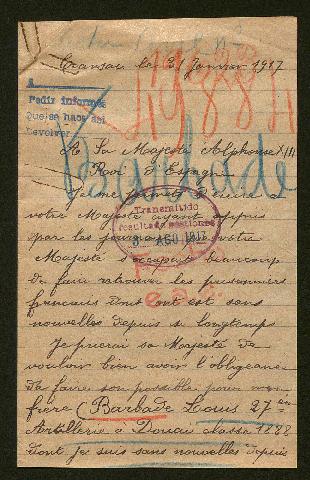 Cransac le 31 Janvier 1917
19884
Pedir informes
Que se hace así
Devolver
Barbade
A Sa Majesté Alphonse XIII
Roi d'Espagne
Je me permet d'écrire à
votre Majesté ayant appris
par les journaux que votre
Majesté s'occupait beaucoup
de faire retrouver les prisonniers
français dont ont est sans
nouvelles depuis si longtemps
Transmitido
resultado gestiones
AGO 1917
Je prierai sa Majesté de
vouloir bien avoir l'obligeance
de faire son possible pour mon
frère (Barbade Louis 27 em
Artillerie a Douai classe 1888
dont je suis sans nouvelles depuis